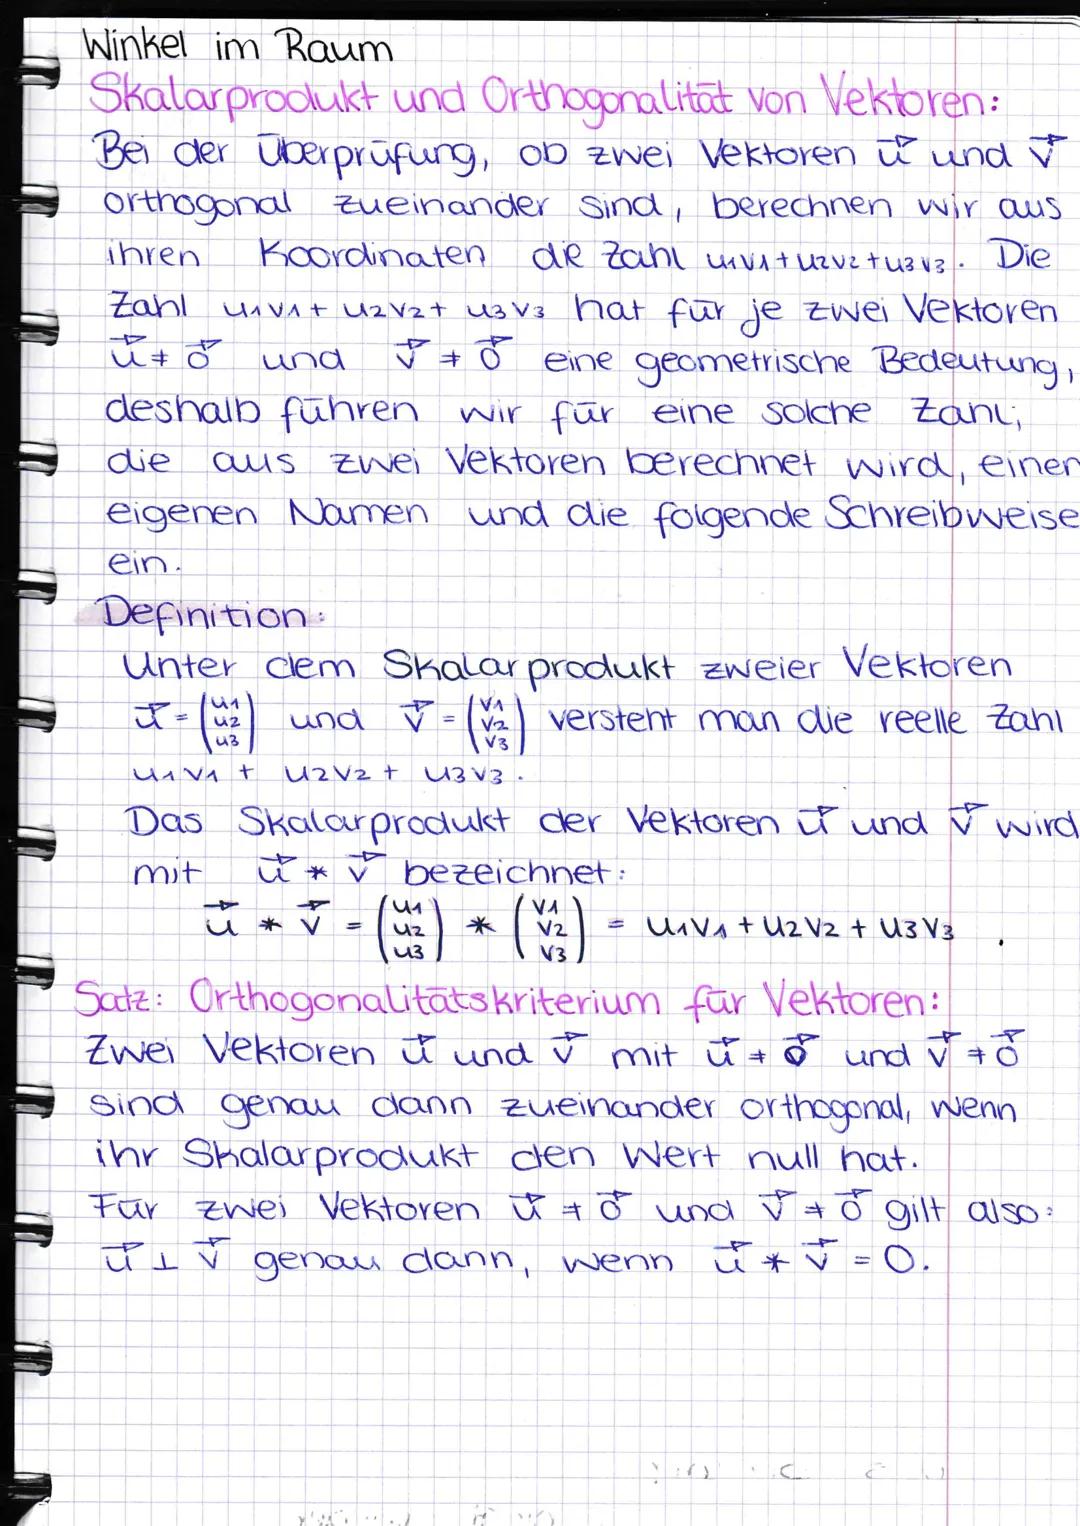 Winkel im Raum
Skalarprodukt und Orthogonalität von Vektoren:
Bei der Überprüfung, ob zwei Vektoren u⃗ und v⃗
orthogonal zueinander sind, berechnen wir aus
ihren Koordinaten die Zahl u1v1+u2v2+u3v3. Die
Zahl u1v1+ u2v2+ u3v3 hat für je zwei Vektoren
u⃗ ≠ o⃗ und v⃗ ≠ o⃗ eine geometrische Bedeutung,
deshalb führen wir für eine solche Zahl,
die aus zwei Vektoren berechnet wird, einen
eigenen Namen und die folgende Schreibweise
ein.
Definition:
Unter dem Skalarprodukt zweier Vektoren
u⃗ = (u1 u2 u3) und v⃗ = (v1 v2 v3) versteht man die reelle Zahl
u1v1 + u2v2 + u3v3.
Das Skalarprodukt der Vektoren u⃗ und v⃗ wird
mit u⃗ * v⃗ bezeichnet:
u⃗ * v⃗ = (u1 u2 u3) * (v1 v2 v3) = u1v1 + u2v2 + u3v3 .
Satz: Orthogonalitätskriterium für Vektoren:
Zwei Vektoren u⃗ und v⃗ mit u⃗ ≠ o⃗ und v⃗ ≠ o⃗
sind genau dann zueinander orthogonal, wenn
ihr Skalarprodukt den Wert null hat.
Für zwei Vektoren u⃗ ≠ o⃗ und v⃗ ≠ o⃗ gilt also:
u⃗ ⊥ v⃗ genau dann, wenn u⃗ * v⃗ = 0.